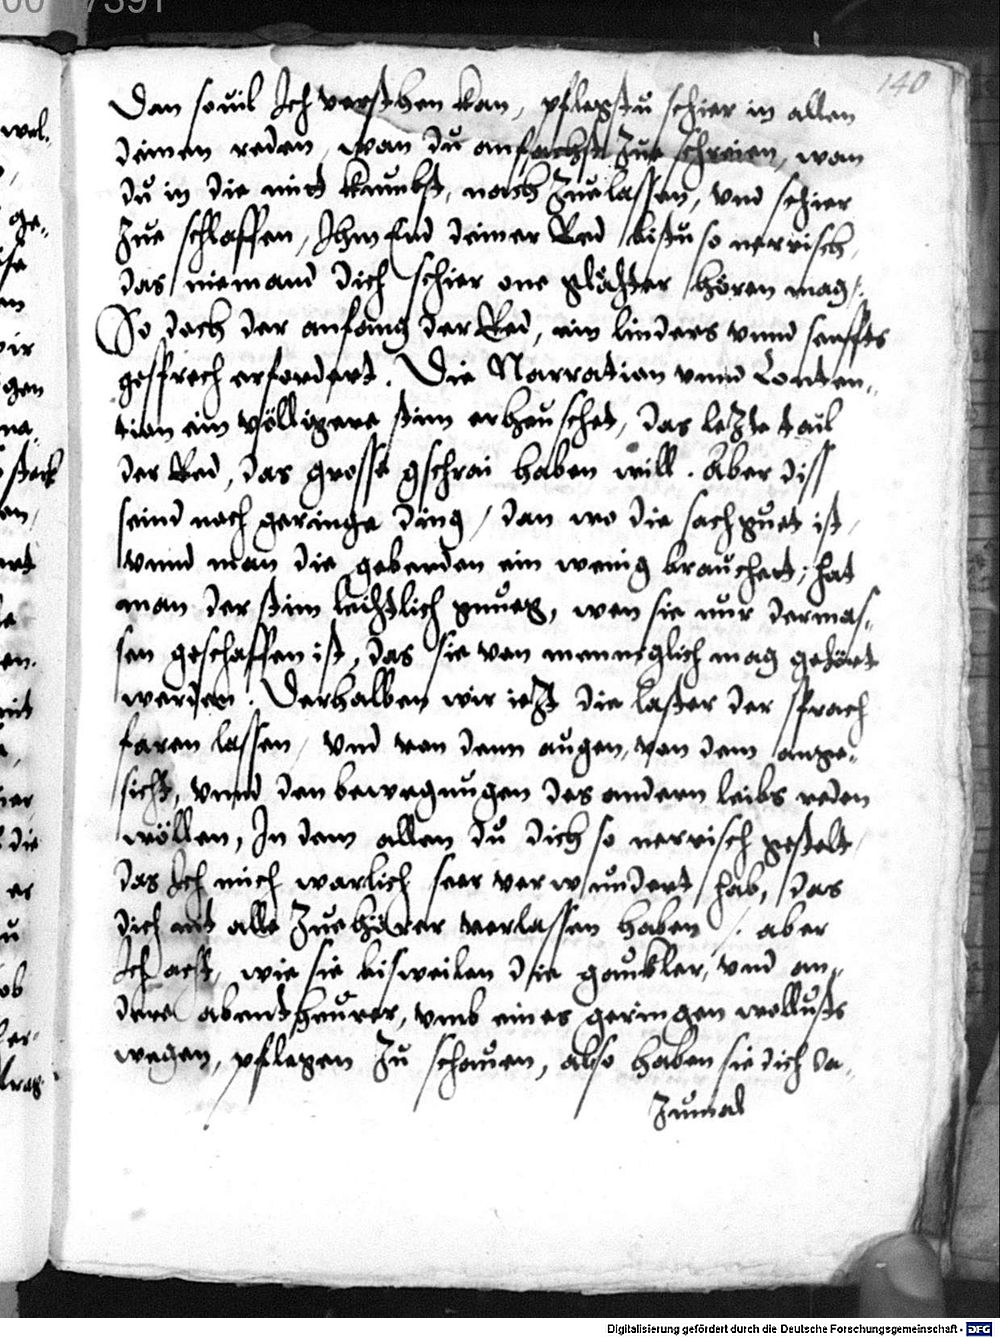 140
Dan souil Ich versthen kan, pflegstu schier in allen
deinen reden, wan du anfachst zue schreien, wan
du in die mitt kumbst, nach zuelassen, vnd schier
zue schlaffen, Ihm End deiner Red bistu so nerrisch,
das niemand dich schier one glächter hören mag.
So doch der anfang der Red, ein linders vnnd senffts
gesprech erfordert. Die Narration vnnd Conten-
tion ein völligere stim erheuschet, das letzte tail
der Red, das grosse gschrai haben will. Aber diss
seind noch geringe ding, dan wo die sach guet ist,
vnnd man die geberden ein wenig brauchet, hat
man der stim leichtlich gnueg, wen sie nur dermas-
sen geschaffen ist, das sie von menniglich mag gehört
werden. Derhalben wir ietzt die laster der sprach
faren lassen, vnd von denn augen, von dem ange-
sicht, vnnd den bewegnugen des andern leibs reden
wöllen, In dem allen du dich so nerrisch gestelt,
das Ich mich warlich seer verwundert hab, das
dich nit alle zuehörer verlassen haben. aber
Ich acht, wie sie bisweilen die gaukler, vnd an-
dere abentheurer, vmb eines geringen wollusts
wegen, pflegen zu schauen, also haben sie dich da-
zumal
wel.
ge-
ise
en
wir
gen
na.
stark
en,
en.
nit
die
er
u
ob
er-
Digitalisierung gefördert durch die Deutsche Forschungsgemeinschaft - DFG